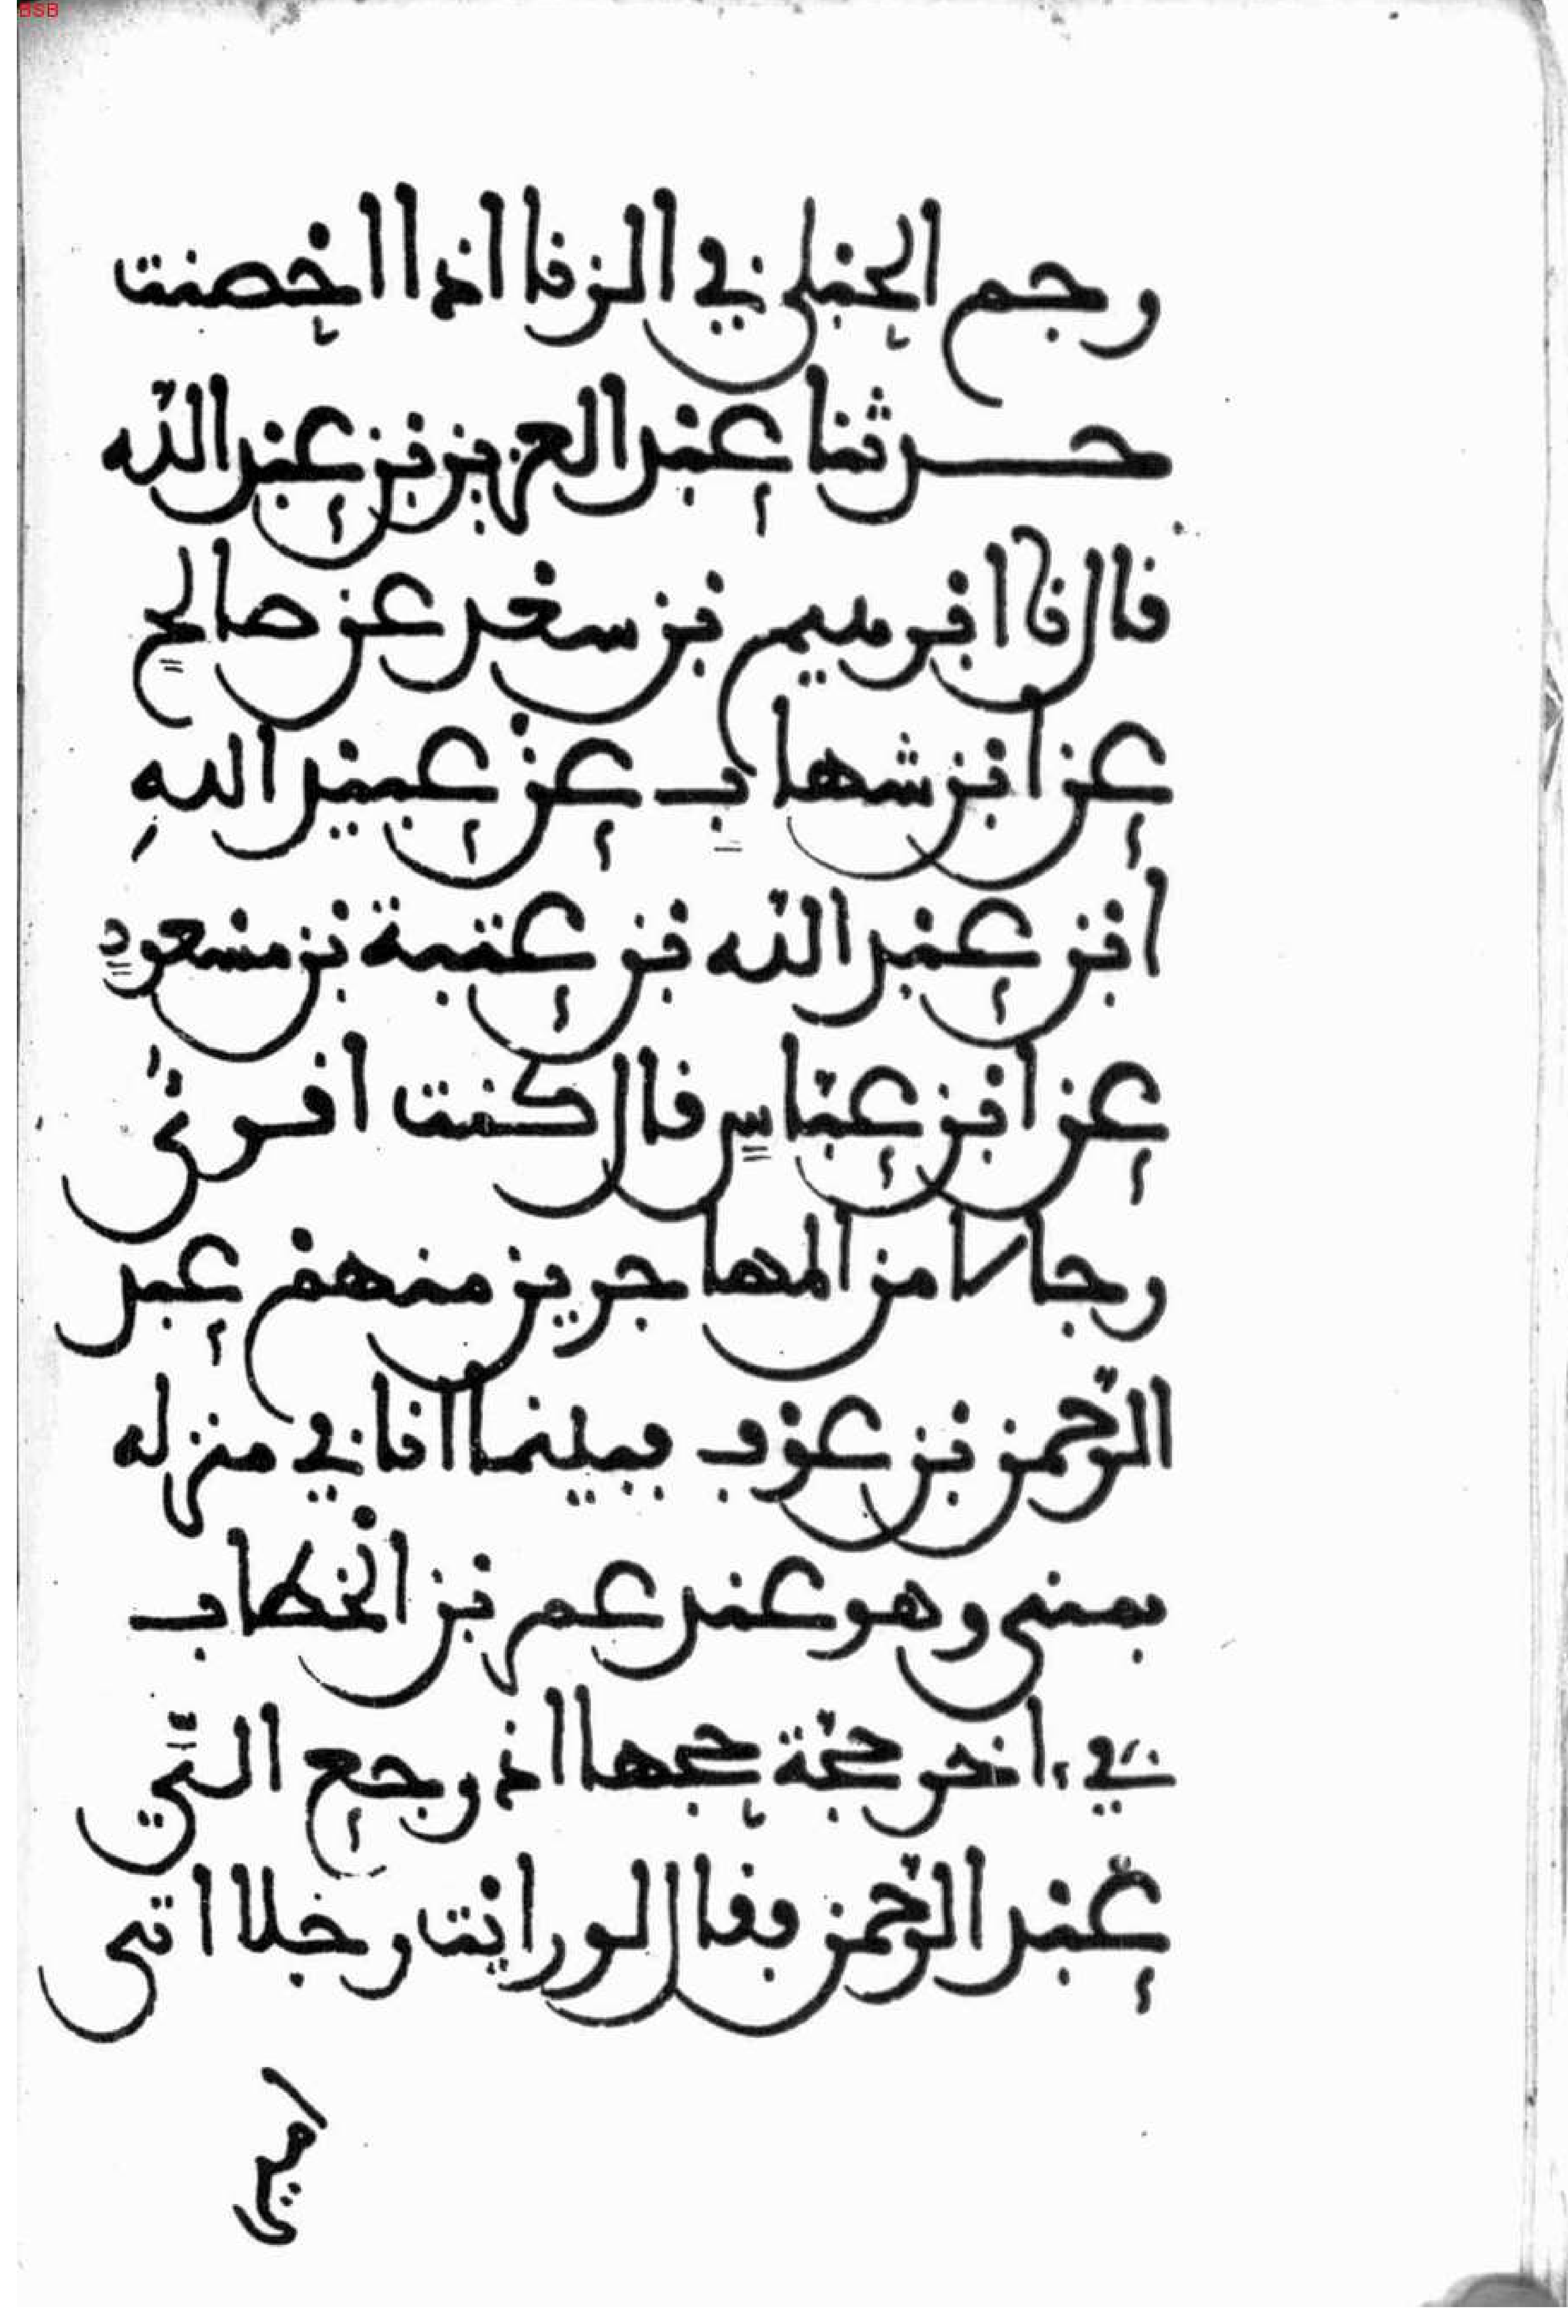 BSB
رجم الحبلى في الزنا اذا احصنت
حدثنا عبد العزيز بن عبد الله
قال نا ابرهيم بن سعد عن صالح
عن ابن شهاب عن عبيد اللهِ
ابن عبد الله بن عتبة بن مسعود
عن ابن عباس قال كنت اقرئ
رجالا من المهاجرين منهم عبد
الرّحمن بن عوف فبينما انا في منزله
بمنى وهو عند عمر بن الخطاب
في اخر حجّة حجها اذ رجع اليّ
عبد الرّحمن فقال لو رايت رجلا اتى